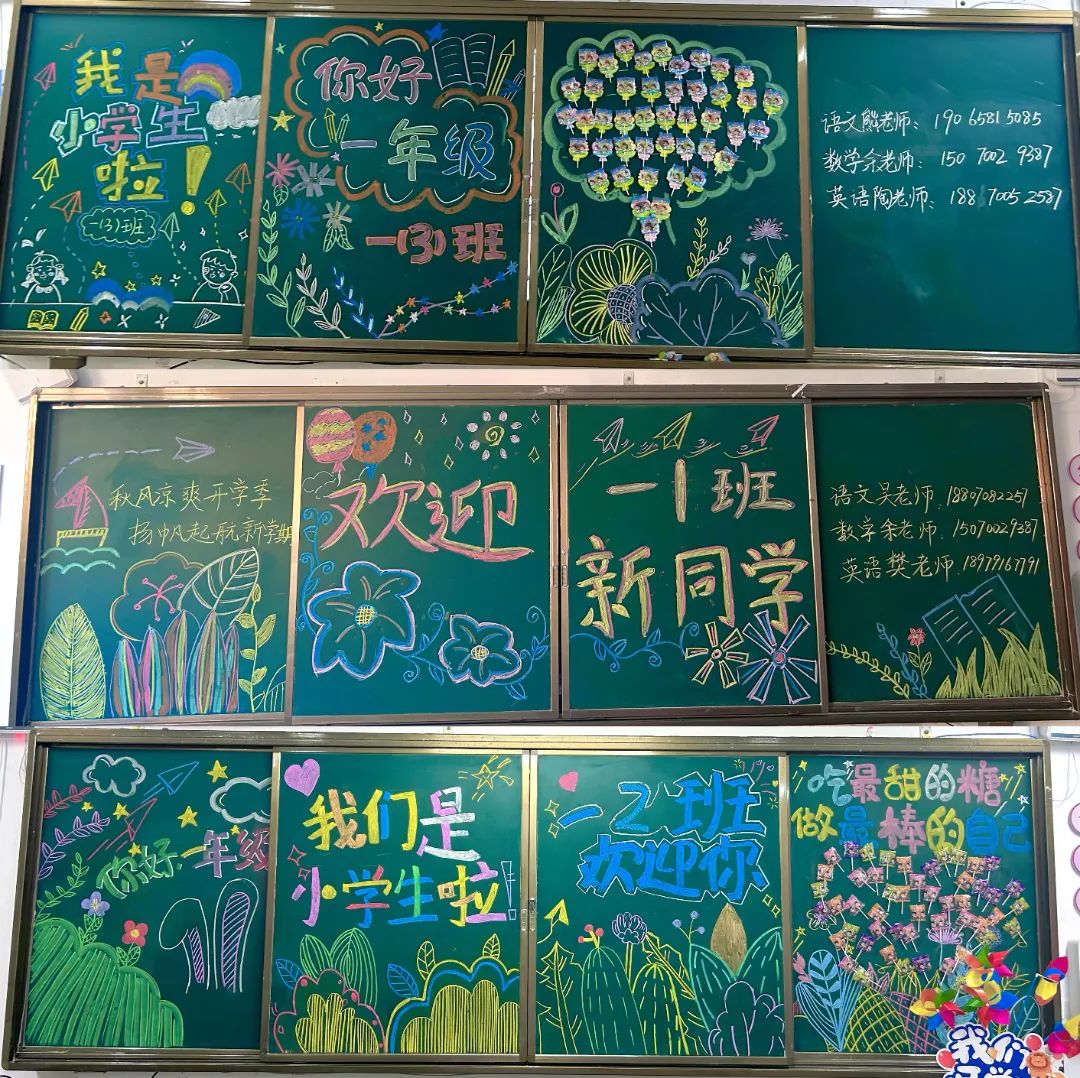 我是
小学生
啦！
一(3)班
你好
一年级
一(3)班
语文熊老师：190 6581 5085
数学余老师：150 7002 9387
英语陶老师：188 7005 2587
秋风凉爽开学季
扬帆起航新学期
欢迎
一1班
新同学
语文吴老师.18807082251
数学余老师.15070029387
英语樊老师.18979167791
你好.一年级
我们是
小学生啦!
一2班
欢迎你
吃最甜的糖
做最棒的自己
我们